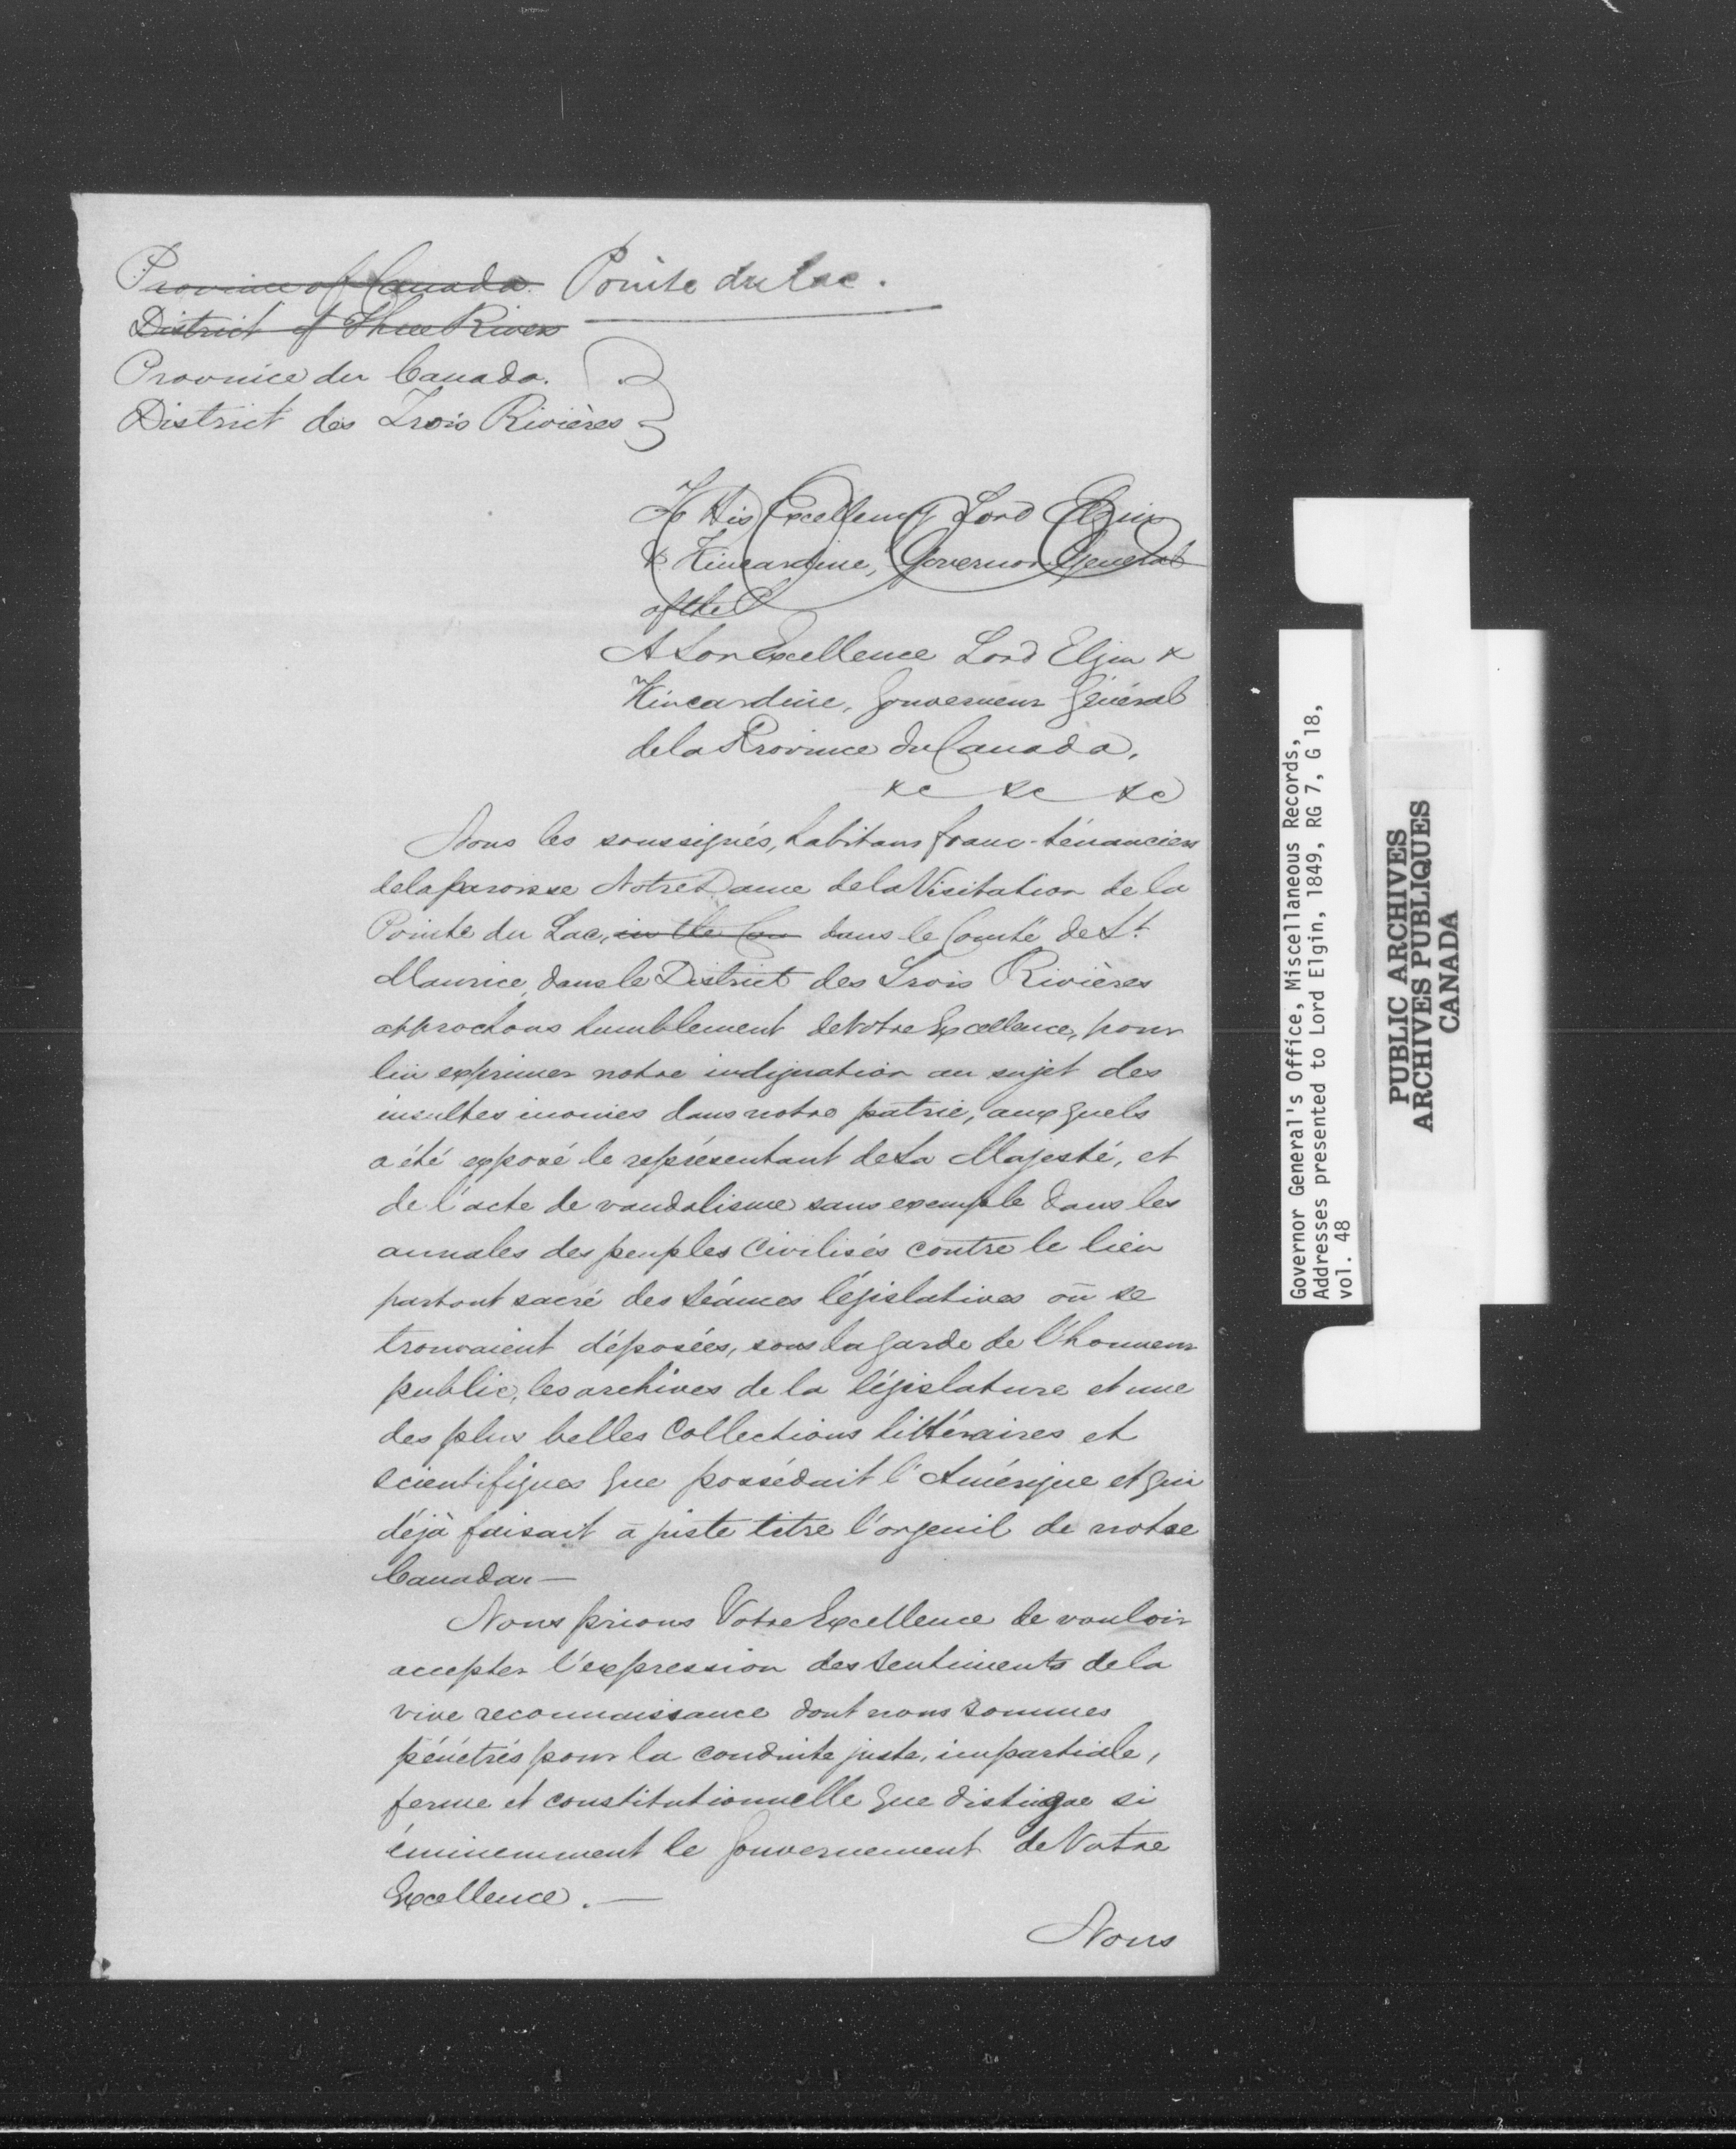 Province of Canada. Pointe du Lac.
District of Three Rivers
Province du Canada.
District des Trois Rivières
To His Excellency Lord Elgin
& Kincardine, Governor General
of the
A Son Excellence Lord Elgin &
Kincardine, Gouverneur Général
de la Province du Canada,
&c &c &c
Nous les soussignés, habitans franc-ténanciers
de la paroisse Notre Dame de la Visitation de la
Pointe du Lac, in the Cou dans le Comté de St.
Maurice, dans le District des Trois Rivières
approchons humblement de Votre Excellence, pour
lui exprimer notre indignation au sujet des
insultes inouies dans notre patrie, auxquels
a été exposé le représentant de Sa Majesté, et
de l'acte de vandalisme sans exemple dans les
annales des peuples civilisés contre le lieu
partout sacré des séances législatives où se
trouvaient déposées, sous la garde de l'honneur
public, les archives de la législature et une
des plus belles collections littéraires et
scientifiques que possédait l'Amérique et qui
déjà faisait à juste titre l'orgeuil de notre
Canada. —
Nous prions Votre Excellence de vouloir
accepter l'expression des sentiments de la
vive reconnaissance dont nous sommes
pénétrés pour la conduite juste, impartiale,
ferme et constitutionnelle que distingue si
éminemment le Gouvernement de Votre
Excellence. —
Nous
Governor General's Office, Miscellaneous Records,
Addresses presented to Lord Elgin, 1849, RG 7, G 18,
vol. 48
PUBLIC ARCHIVES
ARCHIVES PUBLIQUES
CANADA